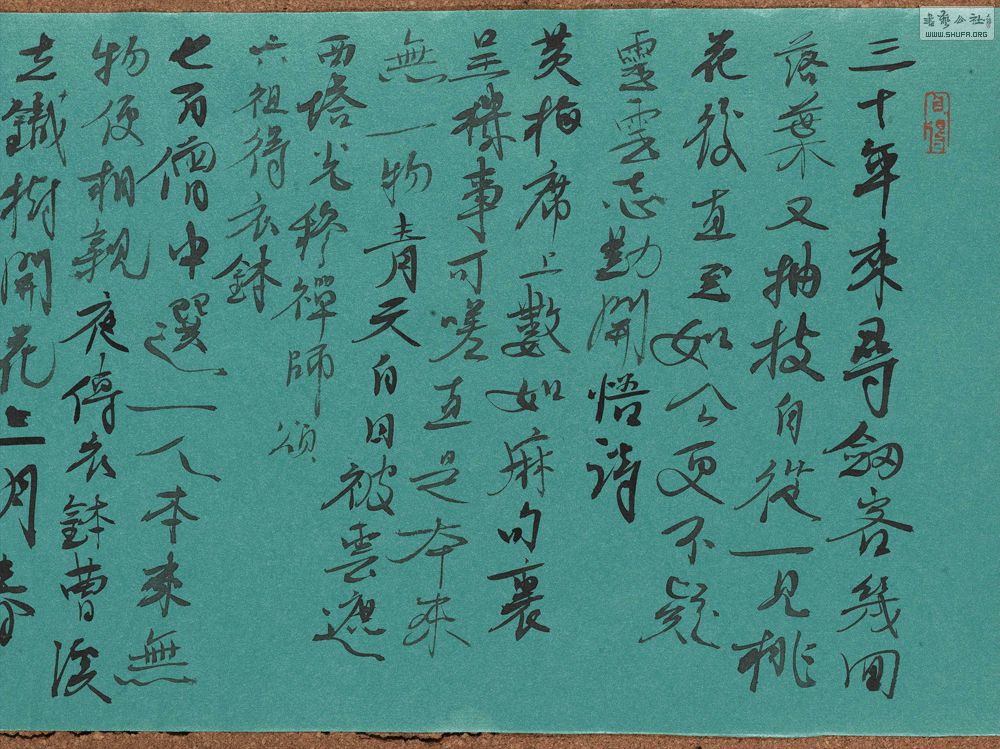 三十年來尋劍客幾回
落葉又抽枝自從一見桃
花後直至如今更不疑
靈雲志勤開悟詩
黃梅席上數如麻句裏
呈機事可嗟直是本來
無一物青天白日被雲遮
西塔光穆禪師頌
六祖得衣鉢
七百僧中選一人本來無
物便相親夜傳衣鉢曹溪
去鐵樹開花二月春
書藝公社
WWW.SHUFA.ORG